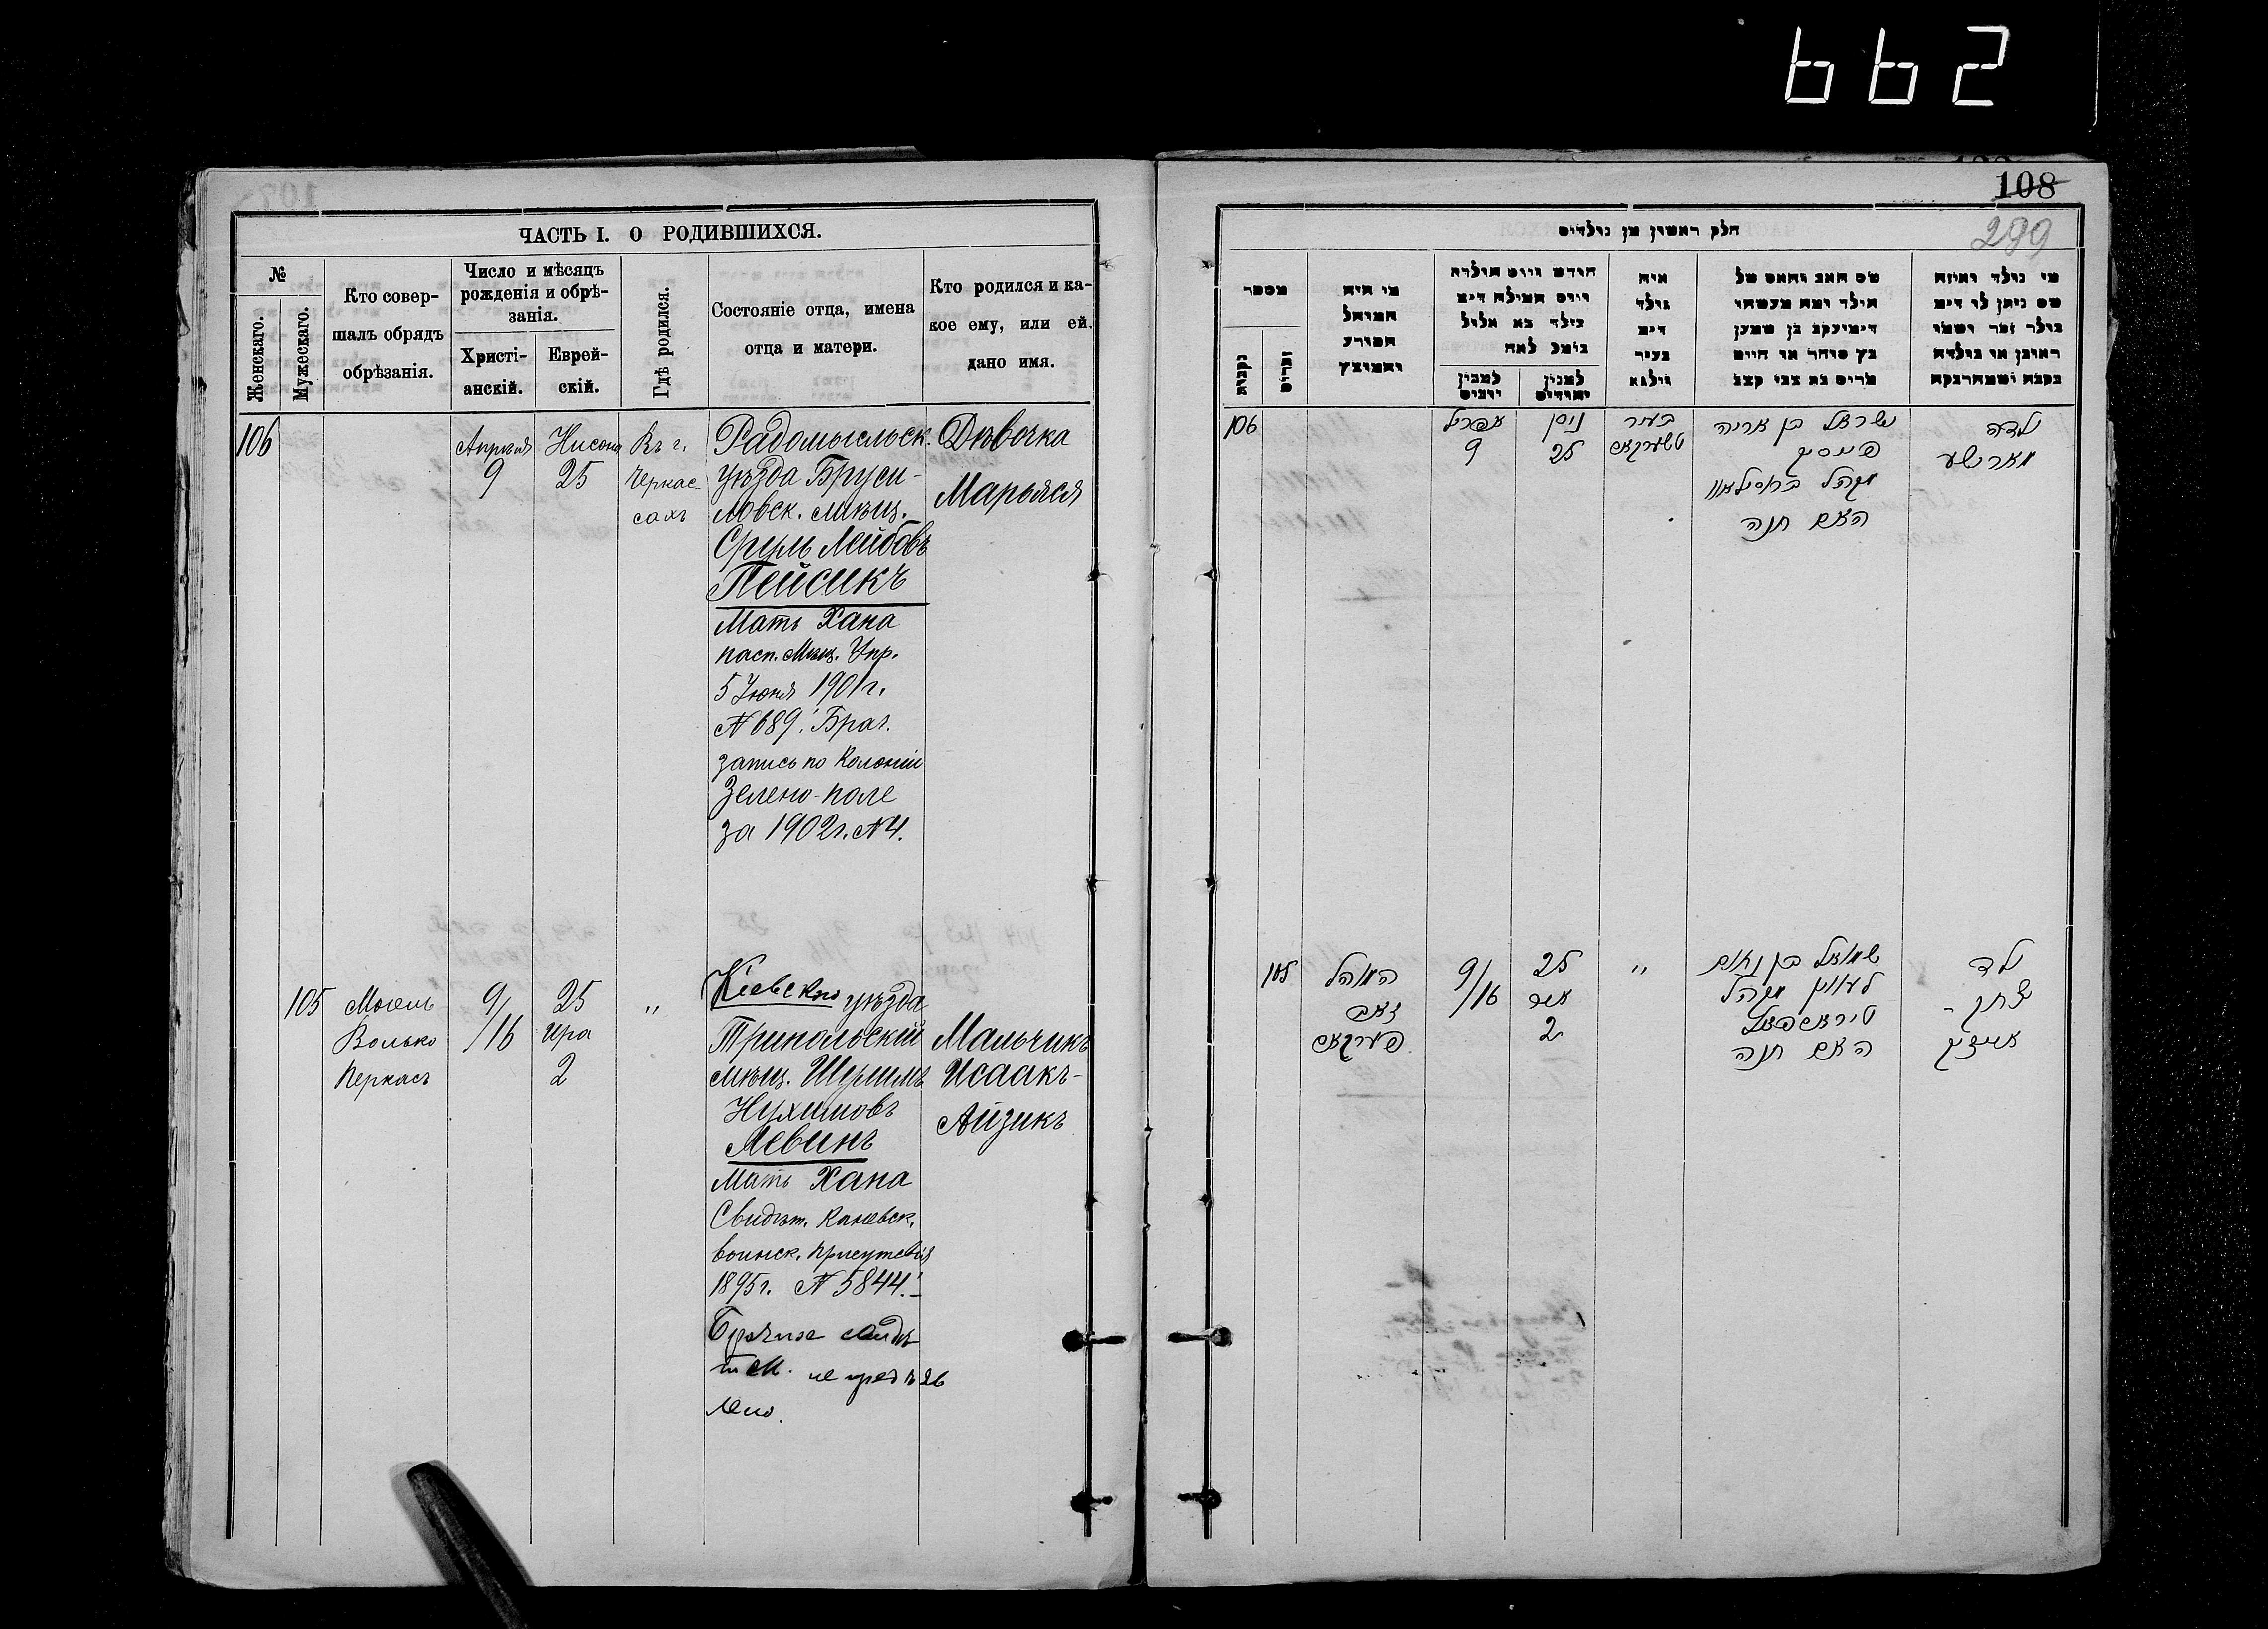 662
108
289
ЧАСТЬ I. О РОДИВШИХСЯ.
№
Женскаго.
Мужескаго.
Кто совер-
шалъ обрядъ
обрѣзанія.
Число и мѣсяцъ
рожденія и обрѣ-
занія.
Христі-
анскій.
Еврей-
скій.
Гдѣ родился.
Состояніе отца, имена
отца и матери.
Кто родился и ка-
кое ему, или ей,
дано имя.
106
Апрѣля
9
Нисона
25
Въ г.
Черкас-
сахъ
Радомысльск.
уѣзда Бруси-
ловск. мѣщ.
Сруль Лейбовъ
Пейсикъ
Мать Хана
пасп. Мѣщ. Упр.
5 Іюня 1901 г.
№ 689. Брач.
запись по Колоніи
Зелено-поле
за 1902 г. № 4.
Дѣвочка
Марьяся
105
Могель
Волько
Черкасъ
9/
/16
25
Ира
2
"
Кіевскаго уѣзда
Трипольскій
мѣщ. Шулимъ
Нухимовъ
Левинъ
Мать Хана
Свидѣт. Каневск.
воинск. присутствія
1895 г. № 5844.
не предъяв
лено.
Мальчикъ
Исаакъ-
Айзикъ
חלק ראשון מן נולדים
מספר
נקבות
זכרים
מי היה
המוהל
והמוצץ
חודש ויום הולדת
ויום המילה
למנין
יהודים
איה
נולד
בעיר
ווילנא
שם האב והאם של
הילד ומה מעשהו
מי נולד ואיזה
שם ניתן לו
106
אפריל
9
ניסן
25
בעיר
טשערקאס
ישראל בן אריה
פייסיק
האם חנה
ילדה
מאריאסע
105
המוהל
9/
/16
25
אייר
2
"
שמואל בן נחום
לעווין מקהל
האם חנה
ילד
יצחק -
אייזיק